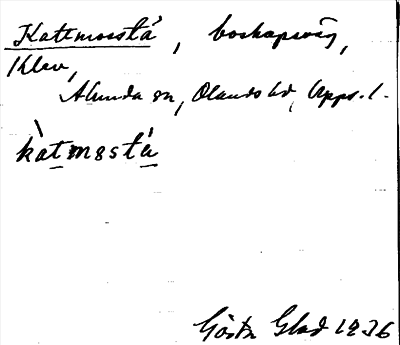 Kattmosstå, boskapsväg,
Klev,
Alunda sn, Olands hd, Upps. l.
kàtmɷstá
Gösta Glad 1936